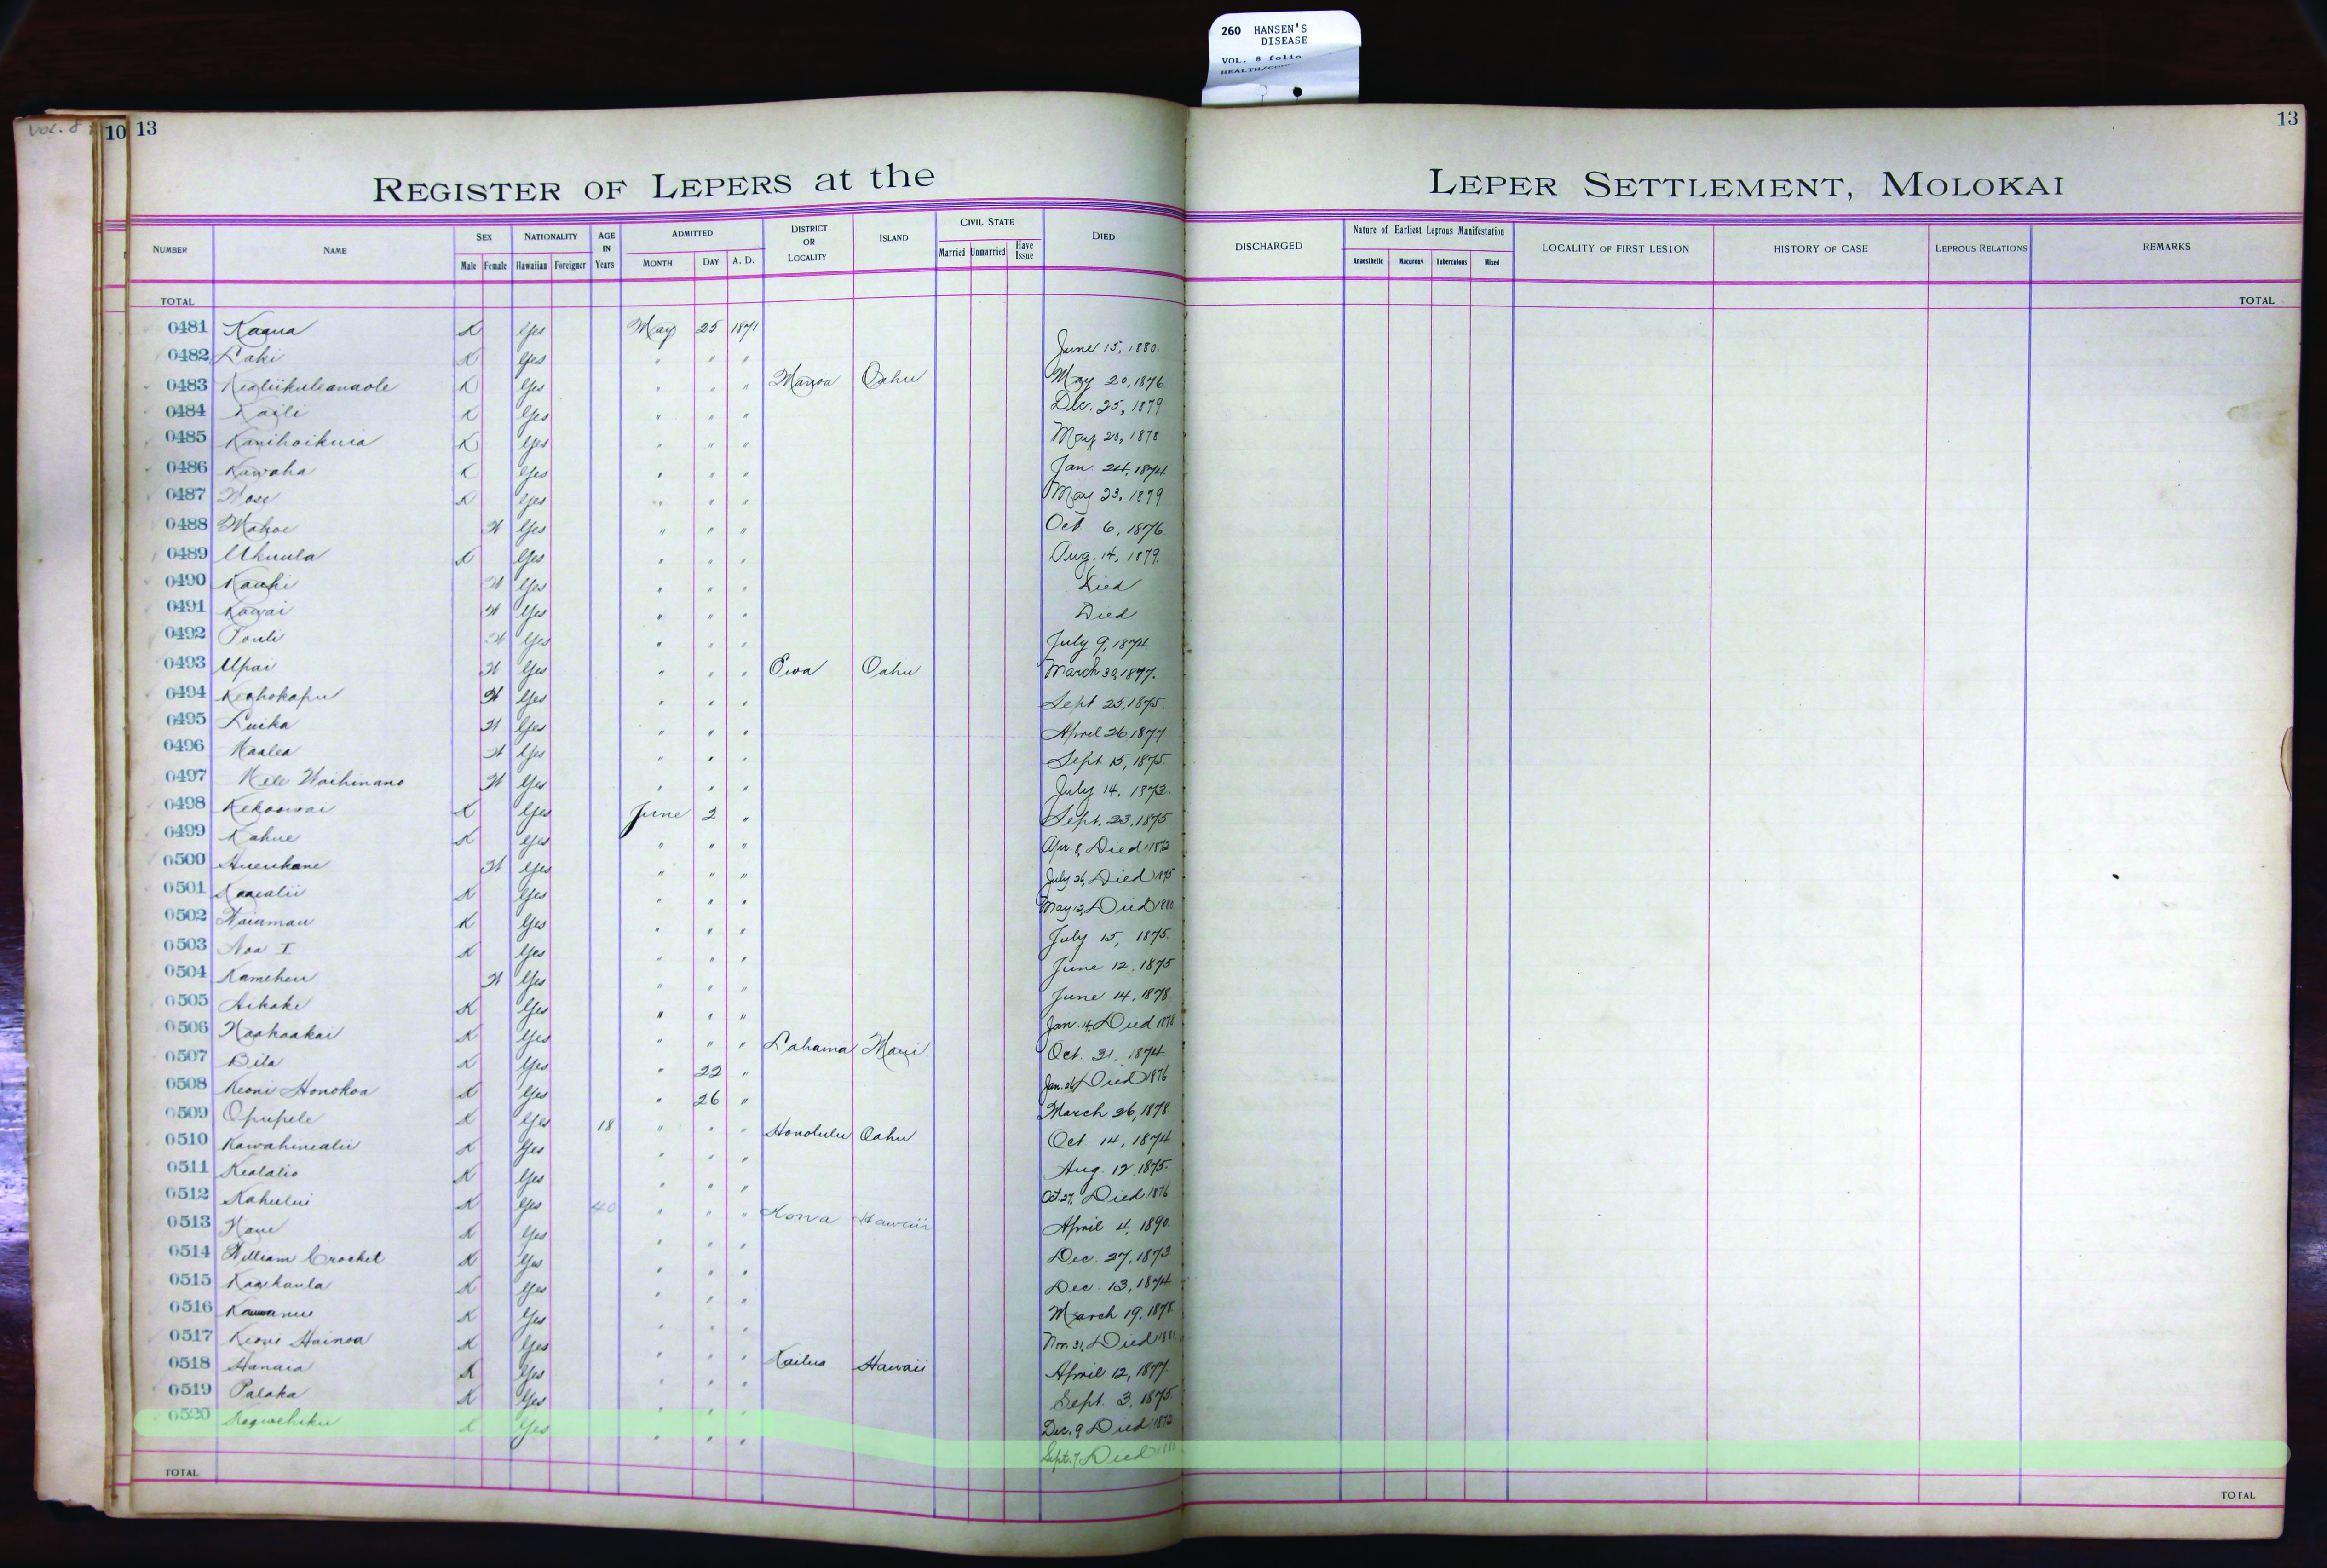 260 HANSEN'S
DISEASE
VOL. 8 folio
VOL. 8
10 13
13
REGISTER OF LEPERS at the LEPER SETTLEMENT, MOLOKAI
NUMBER NAME SEX Male Female NATIONALITY Hawaiian Foreigner AGE IN Years ADMITTED MONTH DAY A. D. DISTRICT OR LOCALITY ISLAND CIVIL STATE Married Unmarried Have Issue DIED DISCHARGED Nature of Earliest Leprous Manifestation Anaesthetic Macurous Tuberculous Mixed LOCALITY OF FIRST LESION HISTORY OF CASE LEPROUS RELATIONS REMARKS
TOTAL TOTAL
0481 Kaaua K Yes May 25 1871
0482 Laki K Yes " " " June 15, 1880.
0483 Kealiikuleanaole K Yes " " " Manoa Oahu May 20, 1876
0484 Kaili K Yes " " " Dec. 25, 1879
0485 Kanihoikuia K Yes " " " May 20, 1878
0486 Kawaha K Yes " " " Jan. 24, 1874
0487 K Yes " " " May 23, 1879
0488 Mahoe W Yes " " " Oct 6, 1876.
0489 Ukuula K Yes " " " Aug. 14, 1879.
0490 Kauhi W Yes " " " Died
0491 Kawai W Yes " " " Died
0492 Pauli W Yes " " " July 9, 1874
0493 Upai W Yes " " " Ewa Oahu March 30, 1877.
0494 Keohokapu W Yes " " " Sept 25, 1875.
0495 Luika W Yes " " " April 26 1877
0496 Maalea W Yes " " " Sept. 15, 1875.
0497 Mele Waihinano W Yes " " " July 14, 1873.
0498 Kekoowai K Yes June 2 " Sept. 23, 1875
0499 Kahue K Yes " " " Apr. 8, Died 1872
0500 Hueukane W Yes " " " July 26, Died 1875
0501 Kaaealii K Yes " " " May 12, Died 1880
0502 Waiamau K Yes " " " July 15, 1875.
0503 Noa I K Yes " " " June 12. 1875
0504 Kameheu W Yes " " " June 14, 1878
0505 Aikake K Yes " " " Jan. 14, Died 1878
0506 Naahaakai K Yes " " " Lahaina Maui Oct. 31, 1874
0507 Bila K Yes " 22 " Jan. 26, Died 1876
0508 Keoni Honokoa K Yes " 26 " March 26, 1878
0509 Opupele K Yes 18 " " " Honolulu Oahu Oct 14, 1874
0510 Kawahinealii K Yes " " " Aug. 12, 1875.
0511 Kealalio K Yes " " " Oct. 27, Died 1876
0512 Kahului K Yes 40 " " " Kona Hawaii April 4, 1890.
0513 Kaue K Yes " " " Dec. 27, 1873
0514 William Crocket K Yes " " " Dec. 13, 1874
0515 Kaaikaula K Yes " " " March 19, 1878
0516 K Yes " " " Nov. 31, Died
0517 Keoni Hainoa K Yes " " " Kailua Hawaii April 12, 1877.
0518 Hanaia K Yes " " " Sept. 3, 1875.
0519 Palaka K Yes " " " Dec. 9 Died 1872
0520 K Yes " " " Sept. 7 Died
TOTAL TOTAL